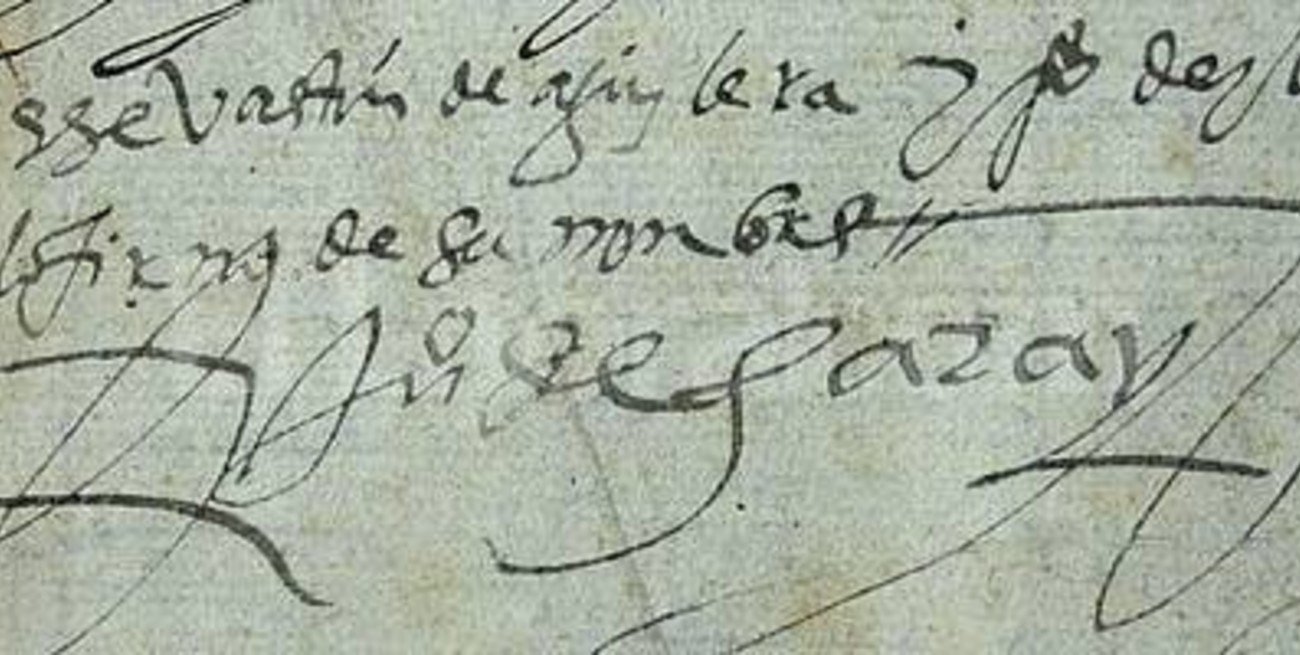 ssevastin de aguilera y po de
lo firmo de su nombre
Juº de garay